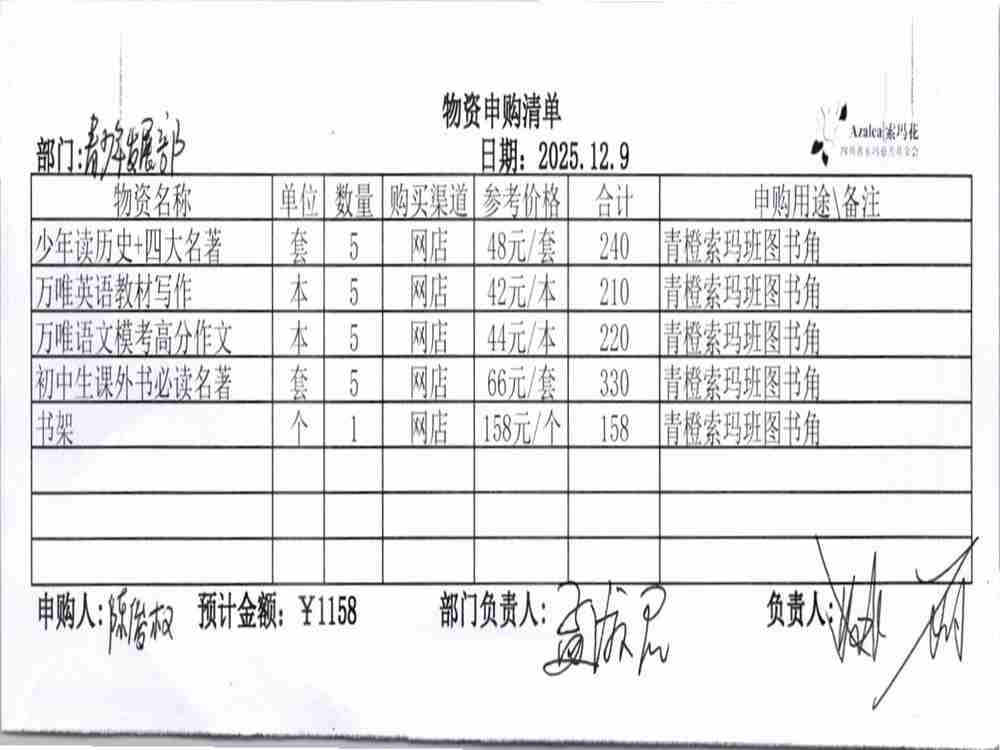 物资申购清单
Azalea 索玛花
部门:青少年发展部 日期：2025.12.9
物资名称 单位 数量 购买渠道 参考价格 合计 申购用途\备注
少年读历史+四大名著 套 5 网店 48元/套 240 青橙索玛班图书角
万唯英语教材写作 本 5 网店 42元/本 210 青橙索玛班图书角
万唯语文模考高分作文 本 5 网店 44元/本 220 青橙索玛班图书角
初中生课外书必读名著 套 5 网店 66元/套 330 青橙索玛班图书角
书架 个 1 网店 158元/个 158 青橙索玛班图书角
申购人: 预计金额：￥1158 部门负责人: 负责人: